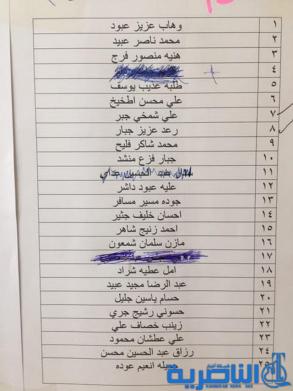 ١ وهاب عزيز عبود
٢ محمد ناصر عبيد
٣ هنيه منصور فرج
٤
٥ طلبه عذيب يوسف
٦ علي محسن اطخيخ
٧ علي شمخي جبر
٨ رعد عزيز جبار
٩ محمد شاكر فليح
١٠ جبار فزع منشد
١١ عبد الحسين
١٢ عليه عبود داشر
١٣ جوده مسير مسافر
١٤ احسان خليف جثير
١٥ احمد زنيج شاهر
١٦ مازن سلمان شمعون
١٧
١٨ امل عطيه شراد
١٩ عبد الرضا مجيد عبيد
٢٠ حسام ياسين جليل
٢١ حسوني رشيج جري
٢٢ زينب خصاف علي
٢٣ علي عطشان محمود
٢٤ رزاق عبد الحسين محسن
٢٥ جميله انعيم عوده
الناصرية